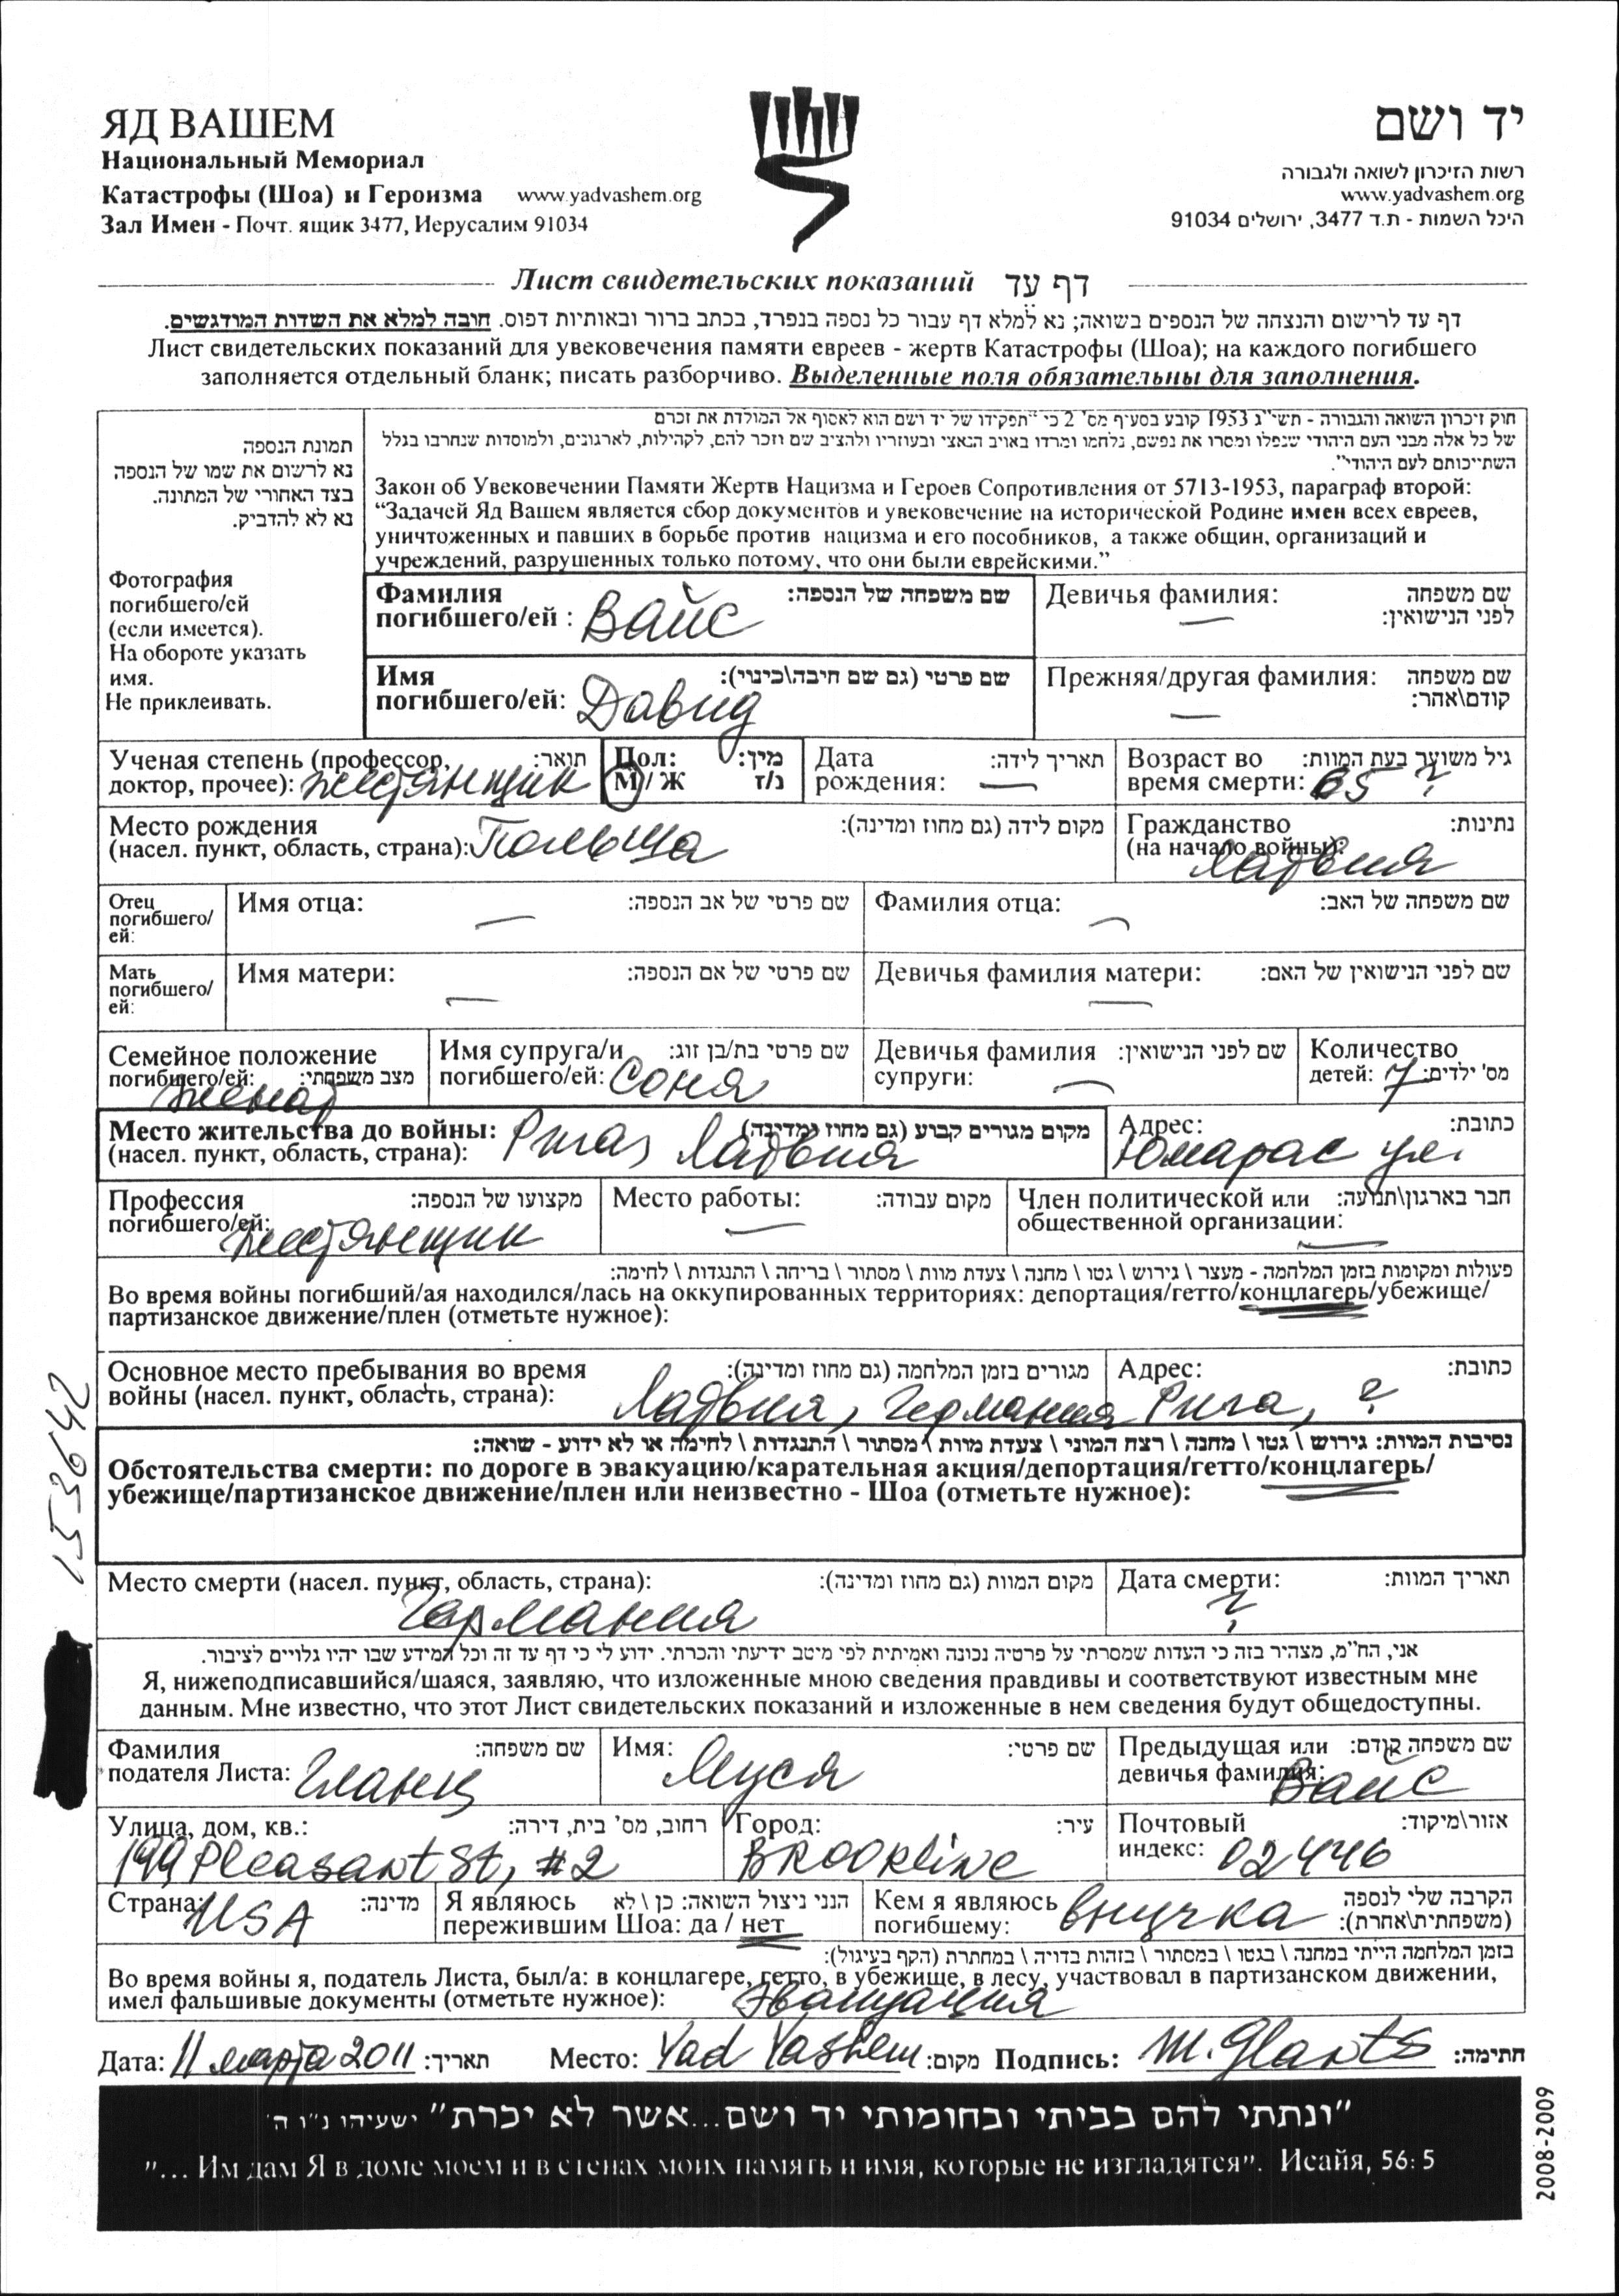 ЯД ВАШЕМ
Национальный Мемориал
Катастрофы (Шоа) и Героизма www.yadvashem.org
Зал Имен - Почт. ящик 3477, Иерусалим 91034
יד ושם
רשות הזיכרון לשואה ולגבורה
www.yadvashem.org
היכל השמות - ת.ד 3477, ירושלים 91034
Лист свидетельских показаний דף עד
דף עד לרישום והנצחה של הנספים בשואה; נא למלא דף עבור כל נספה בנפרד, בכתב ברור ובאותיות דפוס. חובה למלא את השדות המודגשים.
Лист свидетельских показаний для увековечения памяти евреев - жертв Катастрофы (Шоа); на каждого погибшего
заполняется отдельный бланк; писать разборчиво. Выделенные поля обязательны для заполнения.
תמונת הנספה
נא לרשום את שמו של הנספה
בצד האחורי של המתונה.
נא לא להדביק.
Фотография
погибшего/ей
(если имеется).
На обороте указать
имя.
Не приклеивать.
חוק זיכרון השואה והגבורה - תשי"ג 1953 קובע בסעיף מס' 2 כי "תפקידו של יד ושם הוא לאסוף אל המולדת את זכרם
של כל אלה מבני העם היהודי שנפלו ומסרו את נפשם, נלחמו ומרדו באויב הנאצי ובעוזריו ולהציב שם וזכר להם, לקהילות, לארגונים, ולמוסדות שנחרבו בגלל
השתייכותם לעם היהודי".
Закон об Увековечении Памяти Жертв Нацизма и Героев Сопротивления от 5713-1953, параграф второй:
“Задачей Яд Вашем является сбор документов и увековечение на исторической Родине имен всех евреев,
уничтоженных и павших в борьбе против нацизма и его пособников, а также общин, организаций и
учреждений, разрушенных только потому, что они были еврейскими.”
Фамилия שם משפחה של הנספה:
погибшего/ей : Вайс
Девичья фамилия: שם משפחה
לפני הנישואין:
—
Имя שם פרטי (גם שם חיבה\כינוי):
погибшего/ей: Давид
Прежняя/другая фамилия: שם משפחה
קודם\אהר:
—
Ученая степень (профессор, תואר:
доктор, прочее): жестянщик
Пол: מין:
М / Ж נ/ז
Дата תאריך לידה:
рождения: —
Возраст во גיל משוער בעת המוות:
время смерти: 65 ?
Место рождения מקום לידה (גם מחוז ומדינה):
(насел. пункт, область, страна): Польша
Гражданство נתינות:
(на начало войны): Латвия
Отец
погибшего/
ей:
Имя отца: — שם פרטי של אב הנספה:
Фамилия отца: — שם משפחה של האב:
Мать
погибшего/
ей:
Имя матери: — שם פרטי של אם הנספה:
Девичья фамилия матери: — שם לפני הנישואין של האם:
Семейное положение
погибшего/ей: מצב משפחתי:
женат
Имя супруга/и שם פרטי בת/בן זוג:
погибшего/ей: Соня
Девичья фамилия שם לפני הנישואין:
супруги: —
Количество
детей: 7 מס' ילדים:
Место жительства до войны: מקום מגורים קבוע (גם מחוז ומדינה)
(насел. пункт, область, страна): Рига, Латвия
Адрес: כתובת:
Юмарас ул.
Профессия מקצועו של הנספה:
погибшего/ей:
жестянщик
Место работы: מקום עבודה:
—
Член политической или חבר בארגון\תנועה:
общественной организации: —
פעולות ומקומות בזמן המלחמה - מעצר \ גירוש \ גטו \ מחנה \ צעדת מוות \ מסתור \ בריחה \ התנגדות \ לחימה:
Во время войны погибший/ая находился/лась на оккупированных территориях: депортация/гетто/концлагерь/убежище/
партизанское движение/плен (отметьте нужное):
Основное место пребывания во время מגורים בזמן המלחמה (גם מחוז ומדינה):
войны (насел. пункт, область, страна): Латвия, Германия
Адрес: כתובת:
Рига, ?
נסיבות המוות: גירוש \ גטו \ מחנה \ רצח המוני \ צעדת מוות \ מסתור \ התנגדות \ לחימה או לא ידוע - שואה:
Обстоятельства смерти: по дороге в эвакуацию/карательная акция/депортация/гетто/концлагерь/
убежище/партизанское движение/плен или неизвестно - Шоа (отметьте нужное):
Место смерти (насел. пункт, область, страна): מקום המוות (גם מחוז ומדינה):
Германия
Дата смерти: תאריך המוות:
?
אני, הח"מ, מצהיר בזה כי העדות שמסרתי על פרטיה נכונה ואמיתית לפי מיטב ידיעתי והכרתי. ידוע לי כי דף עד זה וכל המידע שבו יהיו גלויים לציבור.
Я, нижеподписавшийся/шаяся, заявляю, что изложенные мною сведения правдивы и соответствуют известным мне
данным. Мне известно, что этот Лист свидетельских показаний и изложенные в нем сведения будут общедоступны.
Фамилия שם משפחה:
подателя Листа: Гланц
Имя: Муся שם פרטי:
Предыдущая или שם משפחה קודם:
девичья фамилия: Вайс
Улица, дом, кв.: רחוב, מס' בית, דירה:
199 Pleasant St, #2
Город: עיר:
Brookline
Почтовый אזור\מיקוד:
индекс: 02446
Страна: USA מדינה:
Я являюсь הנני ניצול השואה: כן \ לא
пережившим Шоа: да / нет
Кем я являюсь הקרבה שלי לנספה
погибшему: внучка (משפחתית\אחרת):
בזמן המלחמה הייתי במחנה \ בגטו \ במסתור \ בזהות בדויה \ במחתרת (הקף בעיגול):
Во время войны я, податель Листа, был/а: в концлагере, гетто, в убежище, в лесу, участвовал в партизанском движении,
имел фальшивые документы (отметьте нужное): Эвакуация
Дата: 11 марта 2011 תאריך: Место: Yad Vashem מקום: Подпись: M. Glants חתימה:
"ונתתי להם בביתי ובחומותי יד ושם...אשר לא יכרת" ישעיהו נ"ו ה'
"... Им дам Я в доме моем и в стенах моих память и имя, которые не изгладятся". Исайя, 56: 5
153642
2008-2009